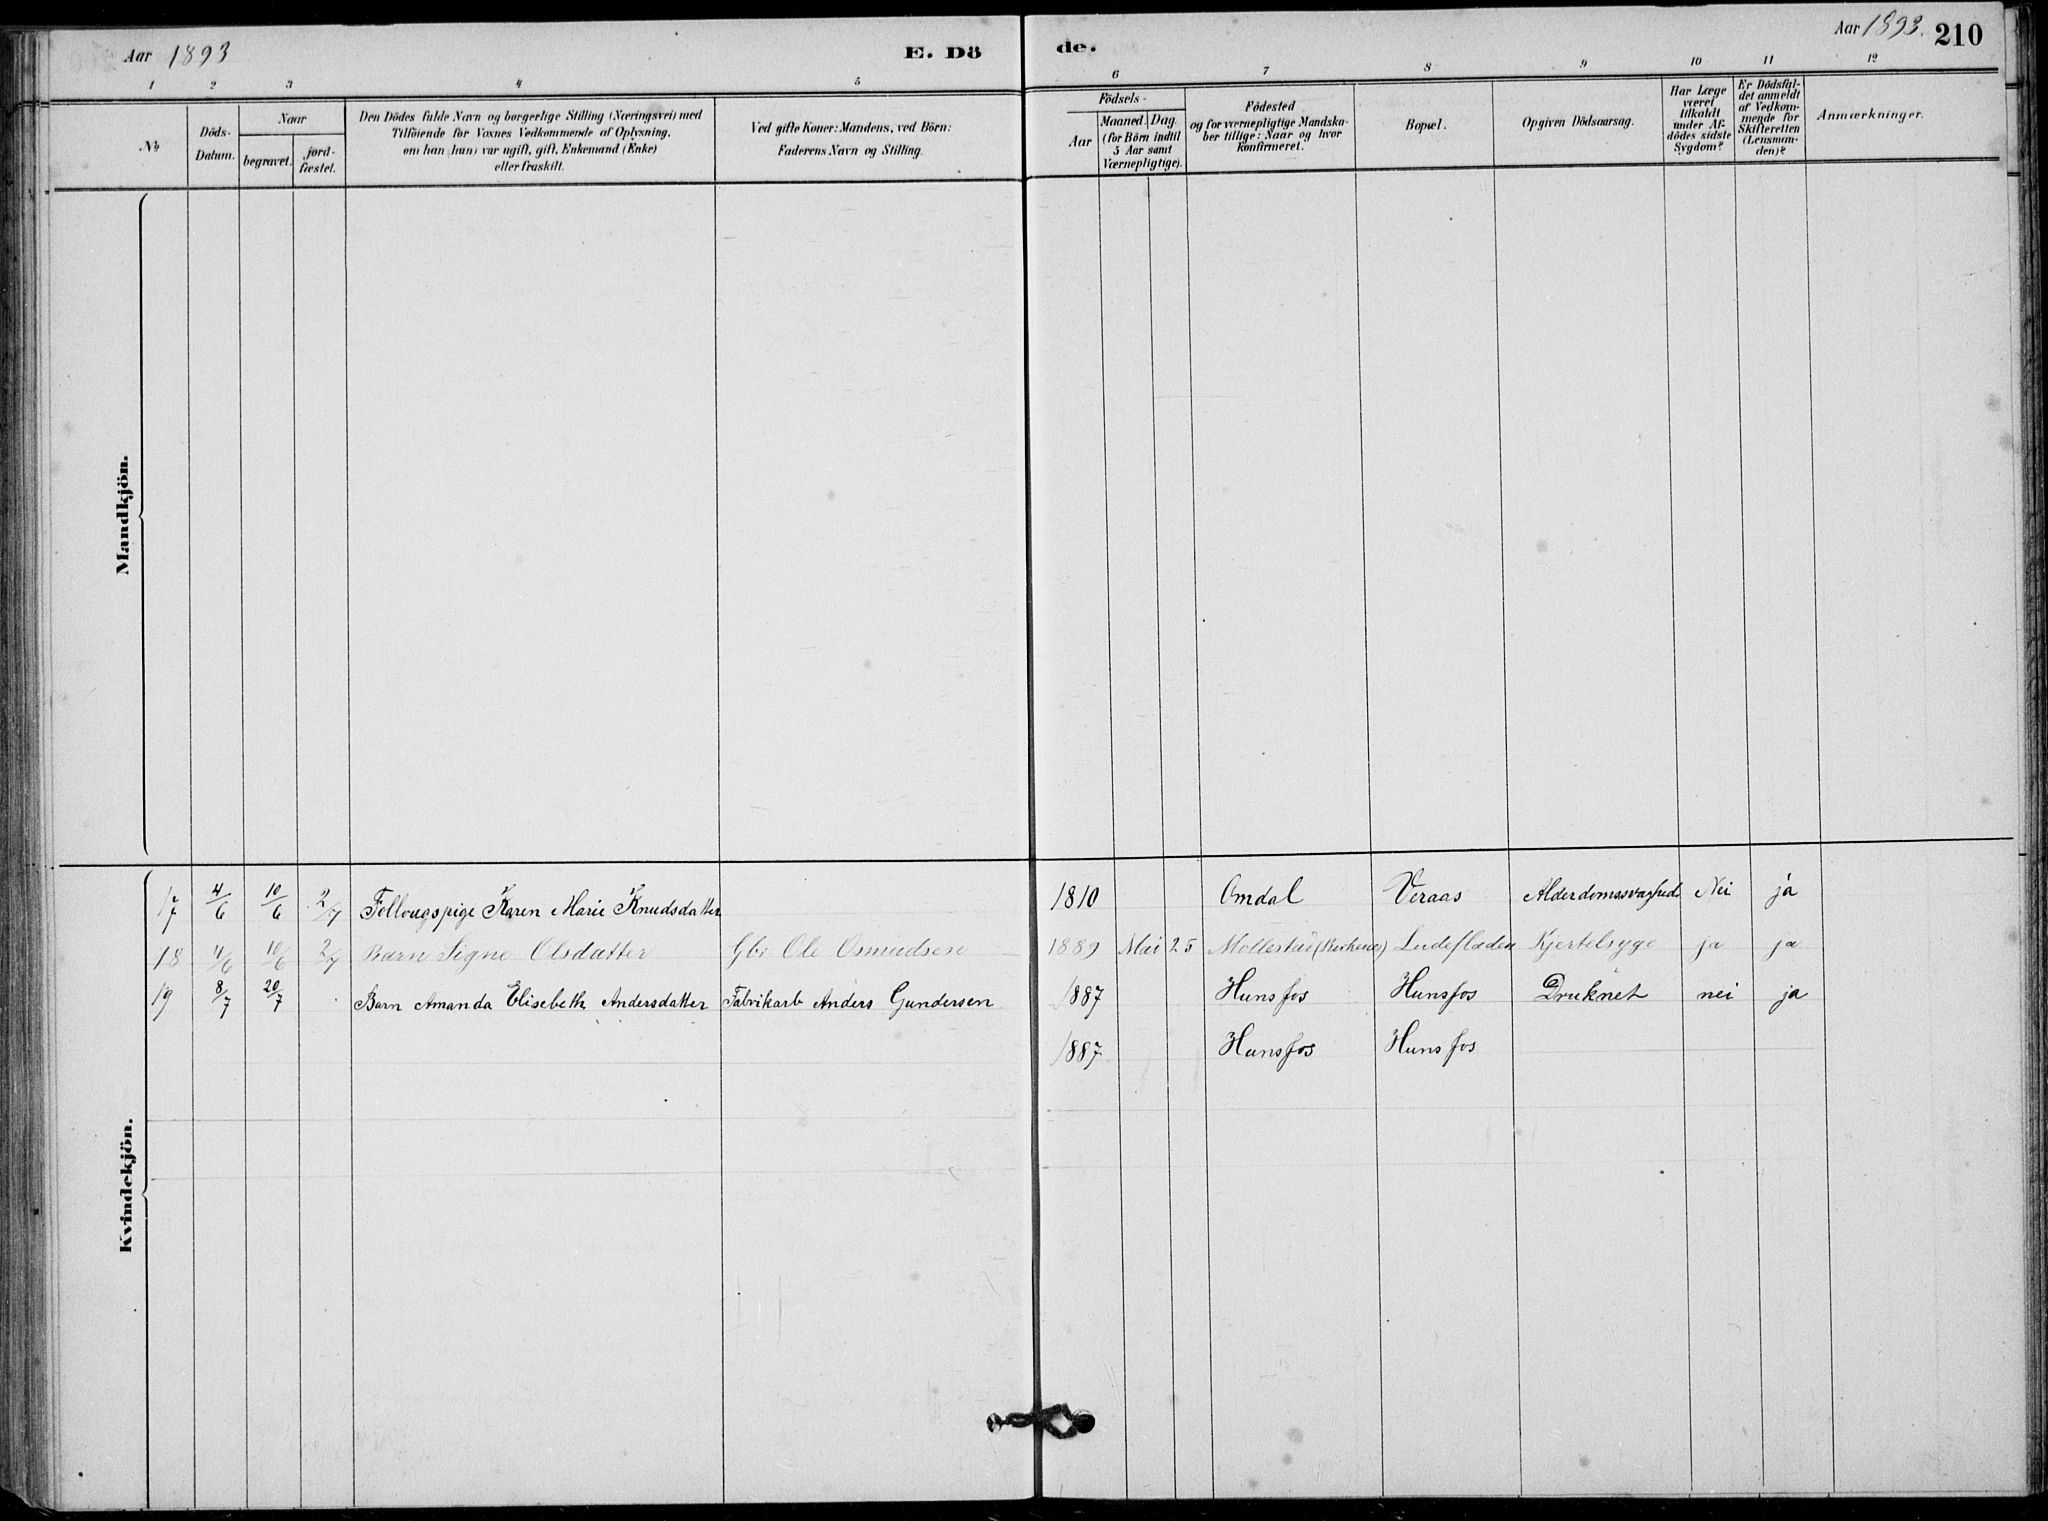 Aar 1893
E. Dö
de.
Aar 1893.
210
1 2 3 4 5 6 7 8 9 10 11 12
№
Döds-Datum.
Naar
begravet.
jord-fæstet.
Den Dödes fulde Navn og borgerlige Stilling (Næringsvei) med
Tilföiende for Voxnes Vedkommende af Oplysning,
om han (hun) var ugift, gift, Enkemand (Enke)
eller fraskilt.
Ved gifte Koner: Mandens, ved Börn:
Faderens Navn og Stilling.
Födsels-
Aar
Maaned. Dag.
(for Börn indtil
5 Aar samt
Værnepligtige).
Födested
og for værnepligtige Mandska-
ber tillige: Naar og hvor
konfirmeret.
Bopæl.
Opgiven Dödsaarsag.
Har Læge
været
tilkaldt
under Af-
dödes sidste
Sygdom?
Er Dödsfal-
det anmeldt
af Vedkom-
mende for
Skifteretten
(Lensman-
den)?
Anmærkninger.
Mandkjön.
Kvindekjön.
17 4/6 10/6 2/7 Karen Marie Knudsdatter 1810 Omdal Veraas Alderdomssvaghed Nei ja
18 4/6 10/6 2/7 Barn Signe Olsdatter Gbr Ole Osmudsen 1889 Mai 25 Mollestad (Birkenes) Ludefladen Kjertelsyge ja ja
19 8/7 20/7 Barn Amanda Elisebeth Andersdatter Fabrikarb Anders Gundersen 1887 Hunsfos Hunsfos Druknet nei ja
1887 Hunsfos Hunsfos